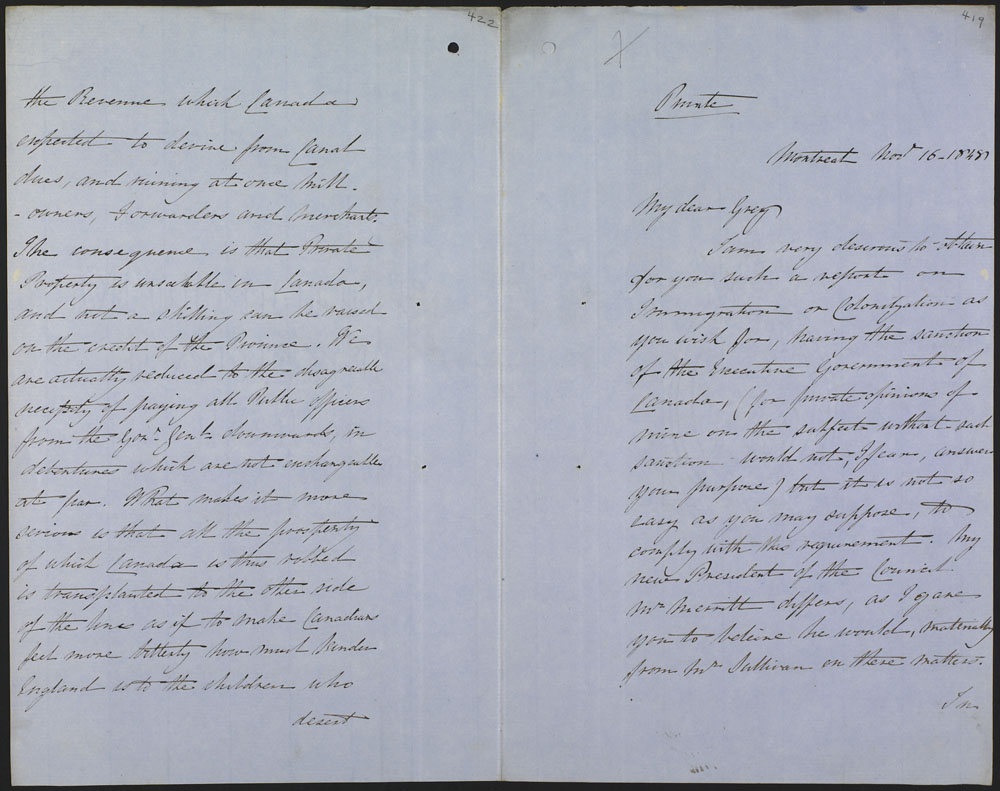 422
the Revenue which Canada
expected to derive from Canal
dues, and ruining at once Mill-
-owners, Forwarders and Merchants.
The consequence is that Private
Property is unsaleable in Canada,
and not a shilling can be raised
on the credit of the Province. We
are actually reduced to the disagreeable
necessity of paying all Public officers
from the Govr. Genl. downwards, in
debentures which are not exchangeable
at par. What makes it more
serious is that all the prosperity
of which Canada is thus robbed
is transplanted to the other side
of the lines as if to make Canadians
feel more bitterly how much kinder
England is to the children who
desert
419
Private
Montreal Novr 16-1848
My dear Grey
I am very desirous to obtain
for you such a report on
Immigration or Colonization as
you wish for, having the sanction
of the Executive Government of
Canada, (for private opinions of
mine on the subject without such
sanction would not, I fear, answer
your purpose) but it is not so
easy as you may suppose, to
comply with this requirement. My
new President of the Council
Mr Merritt differs, as I gave
you to believe he would, materially
from Mr Sullivan on these matters.
In